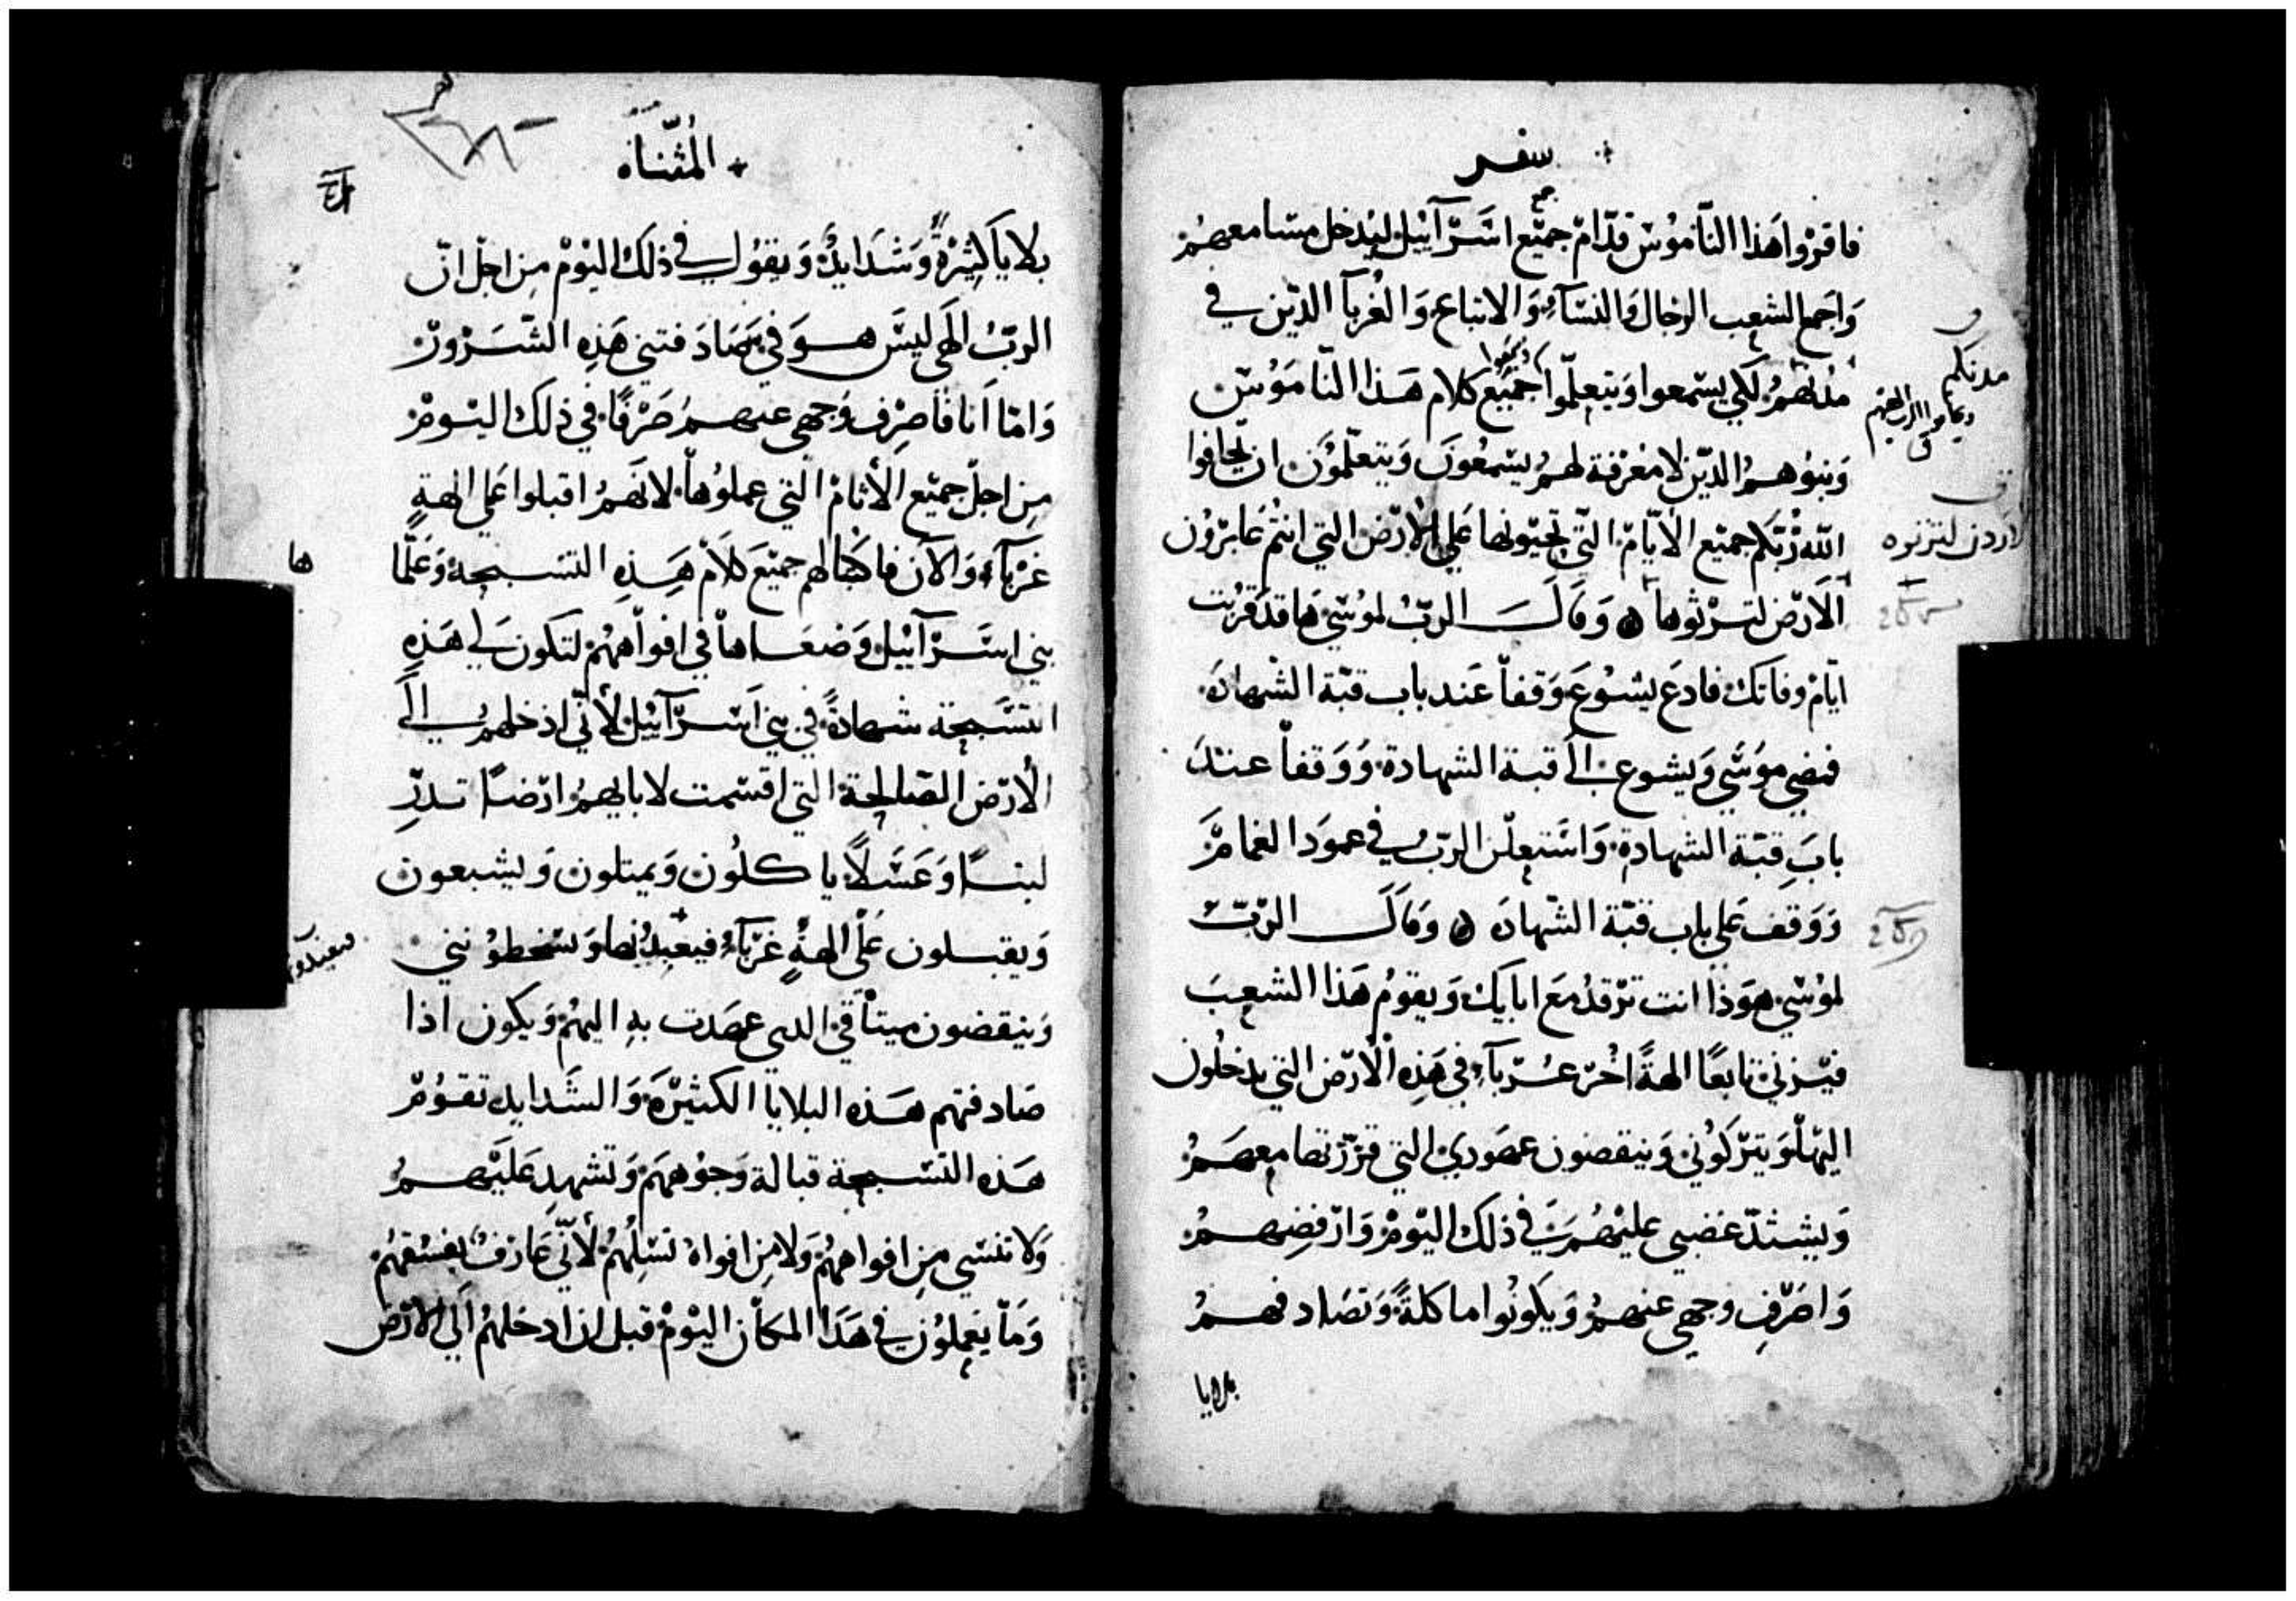 سفر
فاقروا هذا الناموس قدام جميع اسرآييل ليدخل مسامعهم
واجمع الشعب الرجال والنسآء والاتباع والغربآ الدين في
مدنهم لكي يسمعوا ويتعلموا جميع كلام هذا الناموس
وبنوهم الدين لا معرفة لهم يسمعون ويتعلمون ان يخافوا
الله ربكم جميع الايام التي تحيونها علي الارض التي انتم عابرون
الارض لترثوها وقال الرب لموسي ها قد قربت
ايام وفاتك فادع يشوع وقفا عند باب قبة الشهاده
فمضي موسي ويشوع الى قبة الشهادة ووقفا عند
باب قبة الشهادة واستعلن الرب في عمود الغمام
ووقف على باب قبة الشهاده وقال الرب
لموسي هوذا انت ترقد مع ابايك ويقوم هذا الشعب
فيزني تابعا الهة اخر غربآء في هذه الارض التي يدخلون
اليها ويتركوني وينقضون عهودي التي قررتها معهم
ويشتد غضبي عليهم في ذلك اليوم وارفضهم
واصرف وجهي عنهم ويكونوا ماكلة وتصادفهم
بلايا
مدنكم
الاردن لترثوه
المثناه
بلايا كثيرة وشدايد ويقول في ذلك اليوم من اجل ان
الرب الهي ليس هو في صادفتني هذه الشرور
واما انا فاصرف وجهي عنهم صرفا في ذلك اليوم
من اجل جميع الاثام التي عملوها لانهم اقبلوا علي الهة
غربآء والآن فاكتبا لهم جميع كلام هذه التسبحة وعلما
بني اسرآييل وضعاها في افواههم لتكون لي هذه
التسبحة شهادة في بني اسرآييل لأني ادخلهم الى
الارض الصالحة التي اقسمت لابايهم ارضا تدر
لبنا وعسلا ياكلون ويمتلون ويشبعون
ويقبلون على الهة غربآء فيعبدونها ويسخطونني
وينقضون ميثاقي الدي عهدت به اليهم ويكون اذا
صادفتهم هذه البلايا الكثيرة والشدايد تقوم
هذه التسبحة قبالة وجوههم وتشهد عليهم
ولا تنسي من افواههم ولا من افواه نسلهم لأني عارف بفسقهم
وما يفعلون في هذا المكان اليوم قبل ان ادخلهم الي الارض
ها